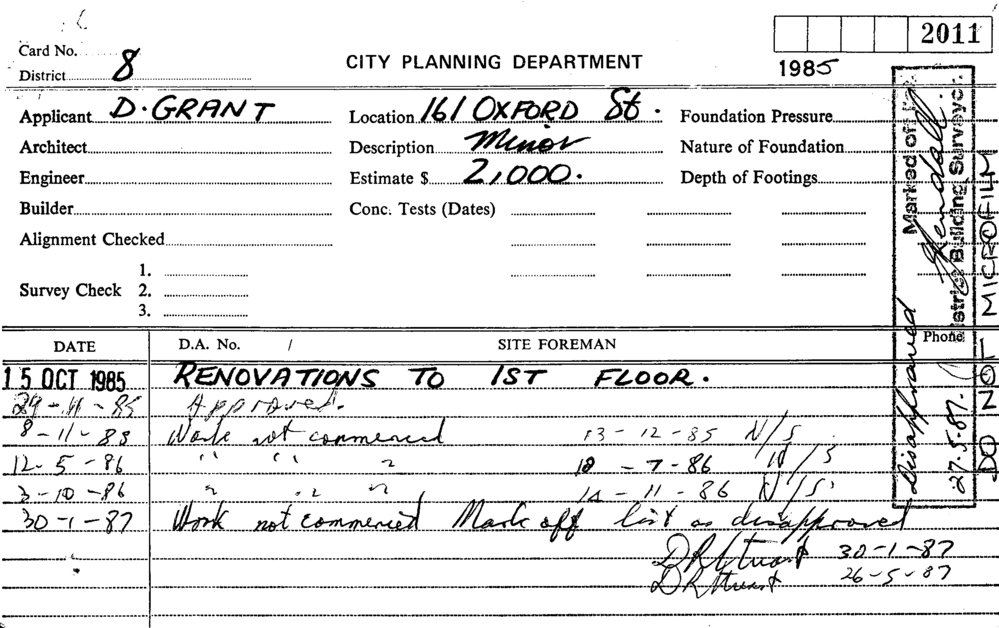 2011
Card No.
District 8
CITY PLANNING DEPARTMENT
1985
Applicant D. GRANT
Location 161 OXFORD St.
Foundation Pressure
Architect
Description Minor
Nature of Foundation
Engineer
Estimate $ 2,000.
Depth of Footings
Builder
Conc. Tests (Dates)
Alignment Checked
Survey Check
1.
2.
3.
Marked off
Kendall
District Building Surveyor
Disapproved 27.5.87.
DO NOT MICROFILM
DATE
D.A. No. /
SITE FOREMAN
Phone
15 OCT 1985 RENOVATIONS TO 1ST FLOOR.
Approved.
8-11-85 Work not commenced 13-12-85 N/S
12-5-86 " " " -7-86 N/S
3-10-86 " " " 14-11-86 N/S
30-1-87 Work not commenced Mark off list as disapproved
30-1-87
26-5-87